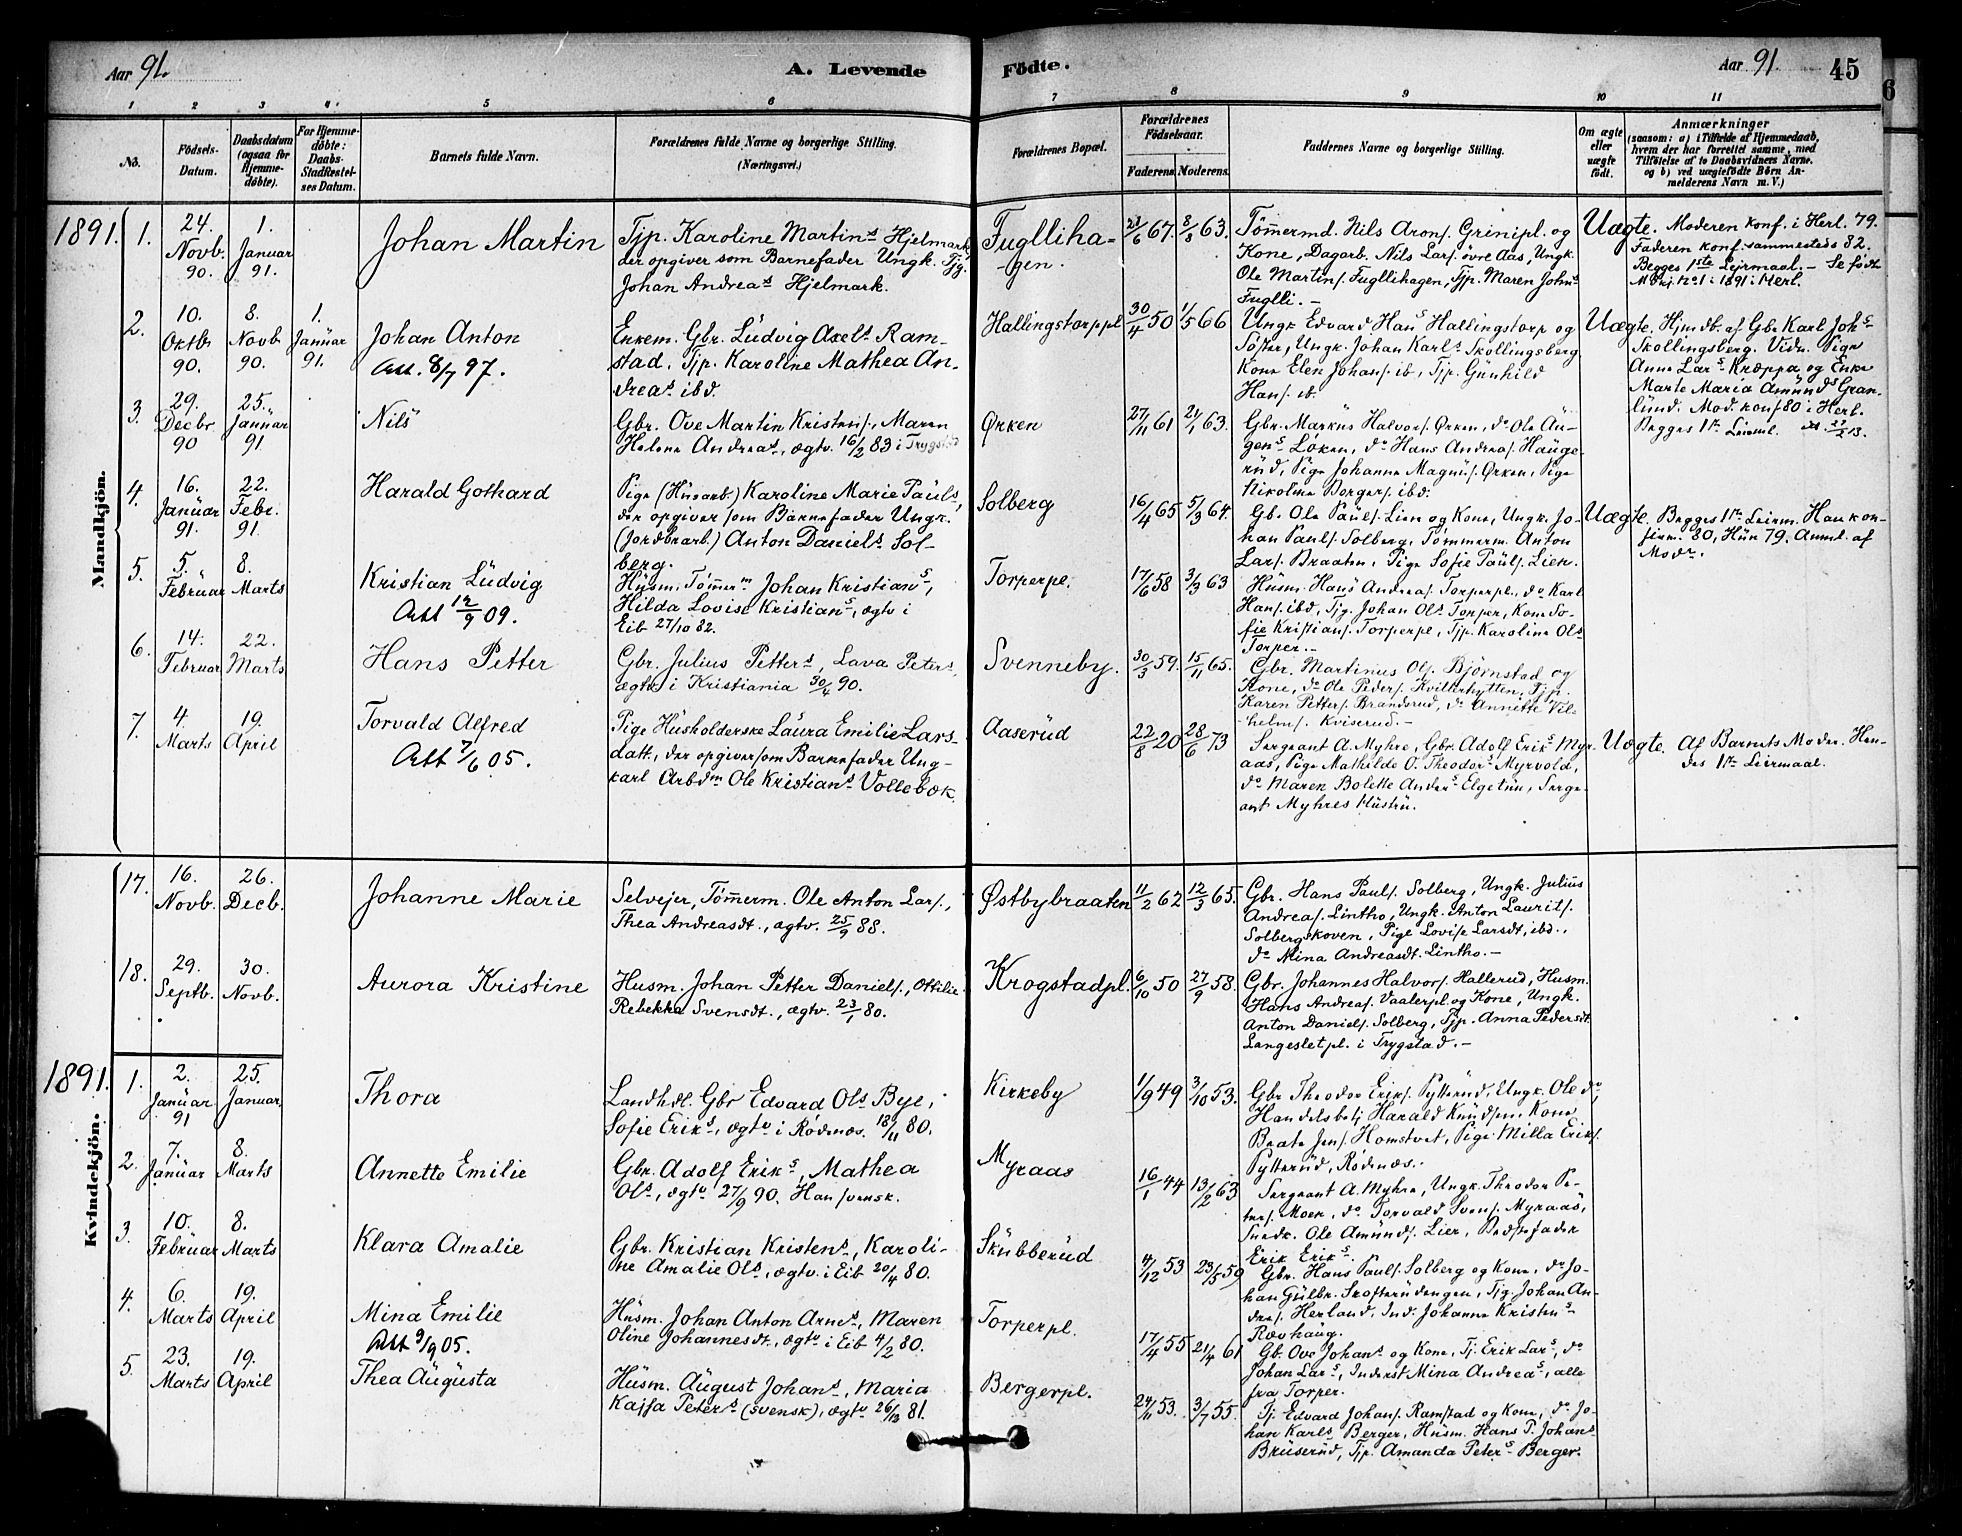 Aar 91.
A. Levende Fødte.
Aar 91
45
6
1 2 3 4 5 6 7 8 9 10 11
No.
Fødsels-Datum.
Daabsdatum (ogsaa for Hjemme-døbte).
For Hjemme-døbte: Daabs-Stadfæstel-ses Datum.
Barnets fulde Navn.
Forældrenes fulde Navne og borgerlige Stilling. (Næringsvei.)
Forældrenes Bopæl.
Forældrenes Fødselsaar.
Faderens. Moderens.
Faddernes Navne og borgerlige Stilling.
Om ægte eller uægte født.
Anmærkninger
(saasom: a) i Tilfælde af Hjemmedaab,
hvem der har forrettet samme, med
Tilføielse af to Daabsvidners Navne.
og b) ved uægtefødte Børn An-
melderens Navn m. V.)
Mandkjøn.
1891. 1.
24. Novb. 90.
1. Januar 91.
Johan Martin
Tjp. Karoline Martins Hjelmark,
der opgiver som Barnefader Ungk. Tjg.
Johan Andreas Hjelmark.
Fugllihagen.
23/6 67. 8/8 63.
Tømermd. Nils Arons. Grinipl. og
Kone, Dagarb. Nils Lars. øvre Aas, Ungk.
Ole Martins. Fugllihagen, Tjp. Maren Johns
Fuglli. –
Uægte. Moderen konf. i Herl. 79.
Faderen konf. sammesteds 82.
Begges 1ste Leirmaal. – Se født
Mskj. No 1 i 1891 i Herl.
2.
10. Oktbr 90.
8. Novb. 90.
1. Januar 91.
Johan Anton
Att. 8/7 97.
Enkem. Gbr. Ludvig Axels. Ram-
stad, Tjp. Karoline Mathea An-
dreas ibd.
Hallingstorppl
30/4 50 1/5 66
Ungk Edvard Hans Hallingstorp og
Søster, Ungk. Johan Karls Skollingsberg
Kone Elen Johans. ib, Tjp. Gunhild
Hans. ib.
Uægte. Hjmdb. af Gbr Karl Johs
Skollingsberg. Vidn. Pige
Anna Lars Kræppa og Enke
Marte Maria Amunds Gran-
lund. Mod. konf 80 i Herl.
Begges 1ste Leirml. 27/2 13.
3.
29. Decbr 90
25. Januar 91
Nils
Gbr. Ove Martin Kristens., Maren
Helene Andreas, ægtv. 16/2 83 i Trygstad
Ørken
27/11 61 21/1 63.
Gbr. Markus Halvors. Ørken, do Ole Au-
gens Løken, do Hans Andreas. Hauge-
rud, Pige Johanne Magnus. Ørken, Pige
Nikoline Bergers. ibd.
4.
16. Januar 91.
22. Febr. 91.
Harald Gothard
Pige (Husarb.) Karoline Marie Pauls,
der opgiver som Barnefader Ungk.
(Jordbrarb.) Anton Daniels Sol-
berg.
Solberg
16/4 65 5/3 64.
Gb. Ole Pauls. Lien og Kone, Ungk. Jo-
han Pauls. Solberg, Tømmerm. Anton
Lars. Braaten, Pige Sofie Pauls. Lien.
Uægte. Begges 1ste Leirm. Han kon-
firm. 80, Hun 79. Anml. af
Modr.
5.
5. Februar
8. Marts
Kristian Ludvig
Att 12/9 09.
Husm. Tømmerm Johan Kristians,
Hilda Lovise Kristians, ægtv i
Eib 27/10 82.
Torperpl.
17/6 58 3/3 63
Husm. Hans Andreas. Torperpl., do Karl
Hans. ibd, Tjg. Johan Ols Torper, Kone So-
fie Kristians. Torperpl, Tjp. Karoline Ols
Torper. –
6.
14. Februar
22. Marts
Hans Petter
Gbr. Julius Petters, Lava Peters,
ægtv. i Kristiania 30/4 90.
Svenneby.
30/3 59. 15/11 65.
Gbr. Martinus Ols. Bjørnstad og
Kone, do Ole Peders. Kvilterhytten, Tjp.
Karen Petters. Brandsrud, do Annette Vil-
helms. Kviserud. –
7.
4. Marts
19. April
Torvald Alfred
Att 7/6 05.
Pige Husholderske Laura Emilie Lars-
datt., der opgiver som Barnefader Ung-
karl Arbdm Ole Kristians Vollebæk.
Aaserud
22/8 20 28/6 73
Sergeant A. Myhre, Gbr. Adolf Eriks Myr-
aas, Pige Mathilde O. Theodors Myrvold,
do Maren Bolette Anders Elgetun, Serge-
ant Myhres Hustru.
Uægte. Af Barnets Moder. Hen-
des 1ste Leiermaal.
Kvindekjön.
17.
16. Novb.
26. Decb.
Johanne Marie
Selvejer, Tømerm. Ole Anton Lars.,
Thea Andreasdt., ægtv. 25/9 88.
Østbybraaten
11/2 62 12/3 65.
Gbr. Hans Pauls. Solberg, Ungk. Julius
Andreas. Lintho, Ungk. Anton Laurits.
Solbergskoven, Pige Lovise Larsdt, ibd.,
do Mina Andreasdt. Lintho. –
18.
29. Septb.
30. Novb.
Aurora Kristine
Husm. Johan Petter Daniels., Ottilie
Rebekka Svensdt., ægtv. 23/1 80.
Krogstadpl.
6/10 50 27/9 58.
Gbr. Johannes Halvors. Hallerud, Husm.
Hans Andreas. Vaalerpl. og Kone, Ungk.
Anton Daniels. Solberg, Tjp. Anna Pedersdt.
Langesletpl. i Trygstad. –
1891. 1.
2. Januar 91
25. Januar
Thora
Landhdl. Gbr Edvard Ols Bye,
Sofie Eriks, ægtv i Rødenæs. 18/11 80.
Kirkeby
1/9 49 3/10 53.
Gbr Theodor Eriks. Pytterud, Ungk. Ole do,
Handelsbetj Harald Knudsen, Kone
Beate Jens. Homstvet, Pige Milla Eriks.
Pytterud, Rødenæs.
2.
7. Januar
8. Marts
Annette Emilie
Gbr. Adolf Eriks, Mathea
Ols, ægtv 27/9 90. Han svensk.
Myraas
16/1 44 13/2 63
Sergeant A. Myhre, Ungk. Theodor Pe-
ters. Moen, do Torvald Svens. Myraas,
Snedk. Ole Amunds. Lier, Bedstefader
Erik Eriks.
3.
10. Februar
8. Marts
Klara Amalie
Gbr. Kristian Kristens, Karoli-
ne Amalie Ols, ægtv. i Eib 20/4 80.
Skubberud
4/12 53 23/5 59
Gbr. Hans Pauls. Solberg og Kone, do Jo-
han Gulbr. Srofterudengen, Tjg. Johan An-
dreas. Herland, Ind. Johanne Kristens
Rævhaug.
4.
6. Marts
19. April
Mina Emilie
Att 9/9 05.
Husm. Johan Anton Arnes, Maren
Oline Johannesdt., ægtv i Eib 4/2 80.
Torperpl.
17/4 55 21/4 61
Gb. Ove Johans og Kone, Tj. Erik Lars, do
Johan Lars, Inderst Mina Andreas, alle
fra Torper.
5.
23. Marts
19. April
Thea Augusta
Husm. August Johans, Maria
Kajsa Peters (svensk), ægtv 26/12 81.
Bergerpl.
24/11 53. 3/7 55.
Tj. Edvard Johans. Ramstad og Kone, do Jo-
han Karls Berger, Husm. Hans P. Johans
Bruserud, Tjp. Amanda Peters Berger.